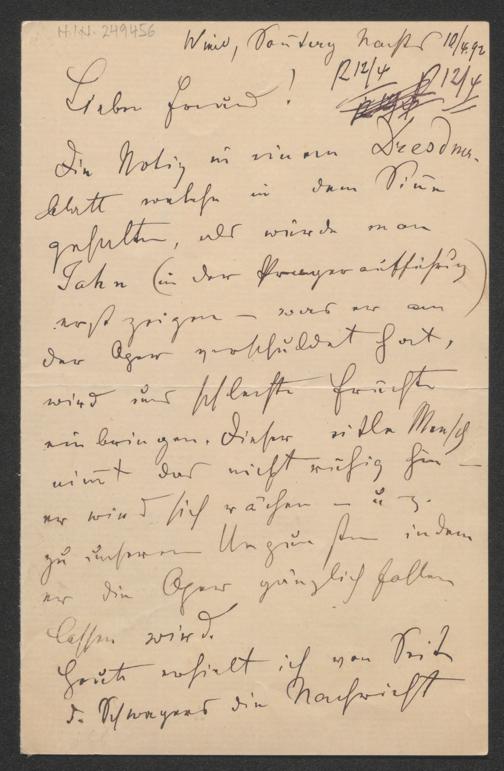 H.I.N. 249456
Wien, Sonntag Nachts 10/4.92
R 12/4 R 12/4
Lieber Freund!
Die Notiz in einem Dresdner-
blatt welche in dem Sinn
gehalten, als würde man
Jahn (in der Prageraufführung)
erst zeigen – was er an
der Oper verschuldet hat,
wird uns schlechte Früchte
einbringen. Dieser eitle Mensch
nimt das nicht ruhig hin –
er wird sich rächen – u z.
zu unseren Ungunsten indem
er die Oper gänzlich fallen
lassen wird.
Heute erhielt ich von Seite
d. Schwagers die Nachricht